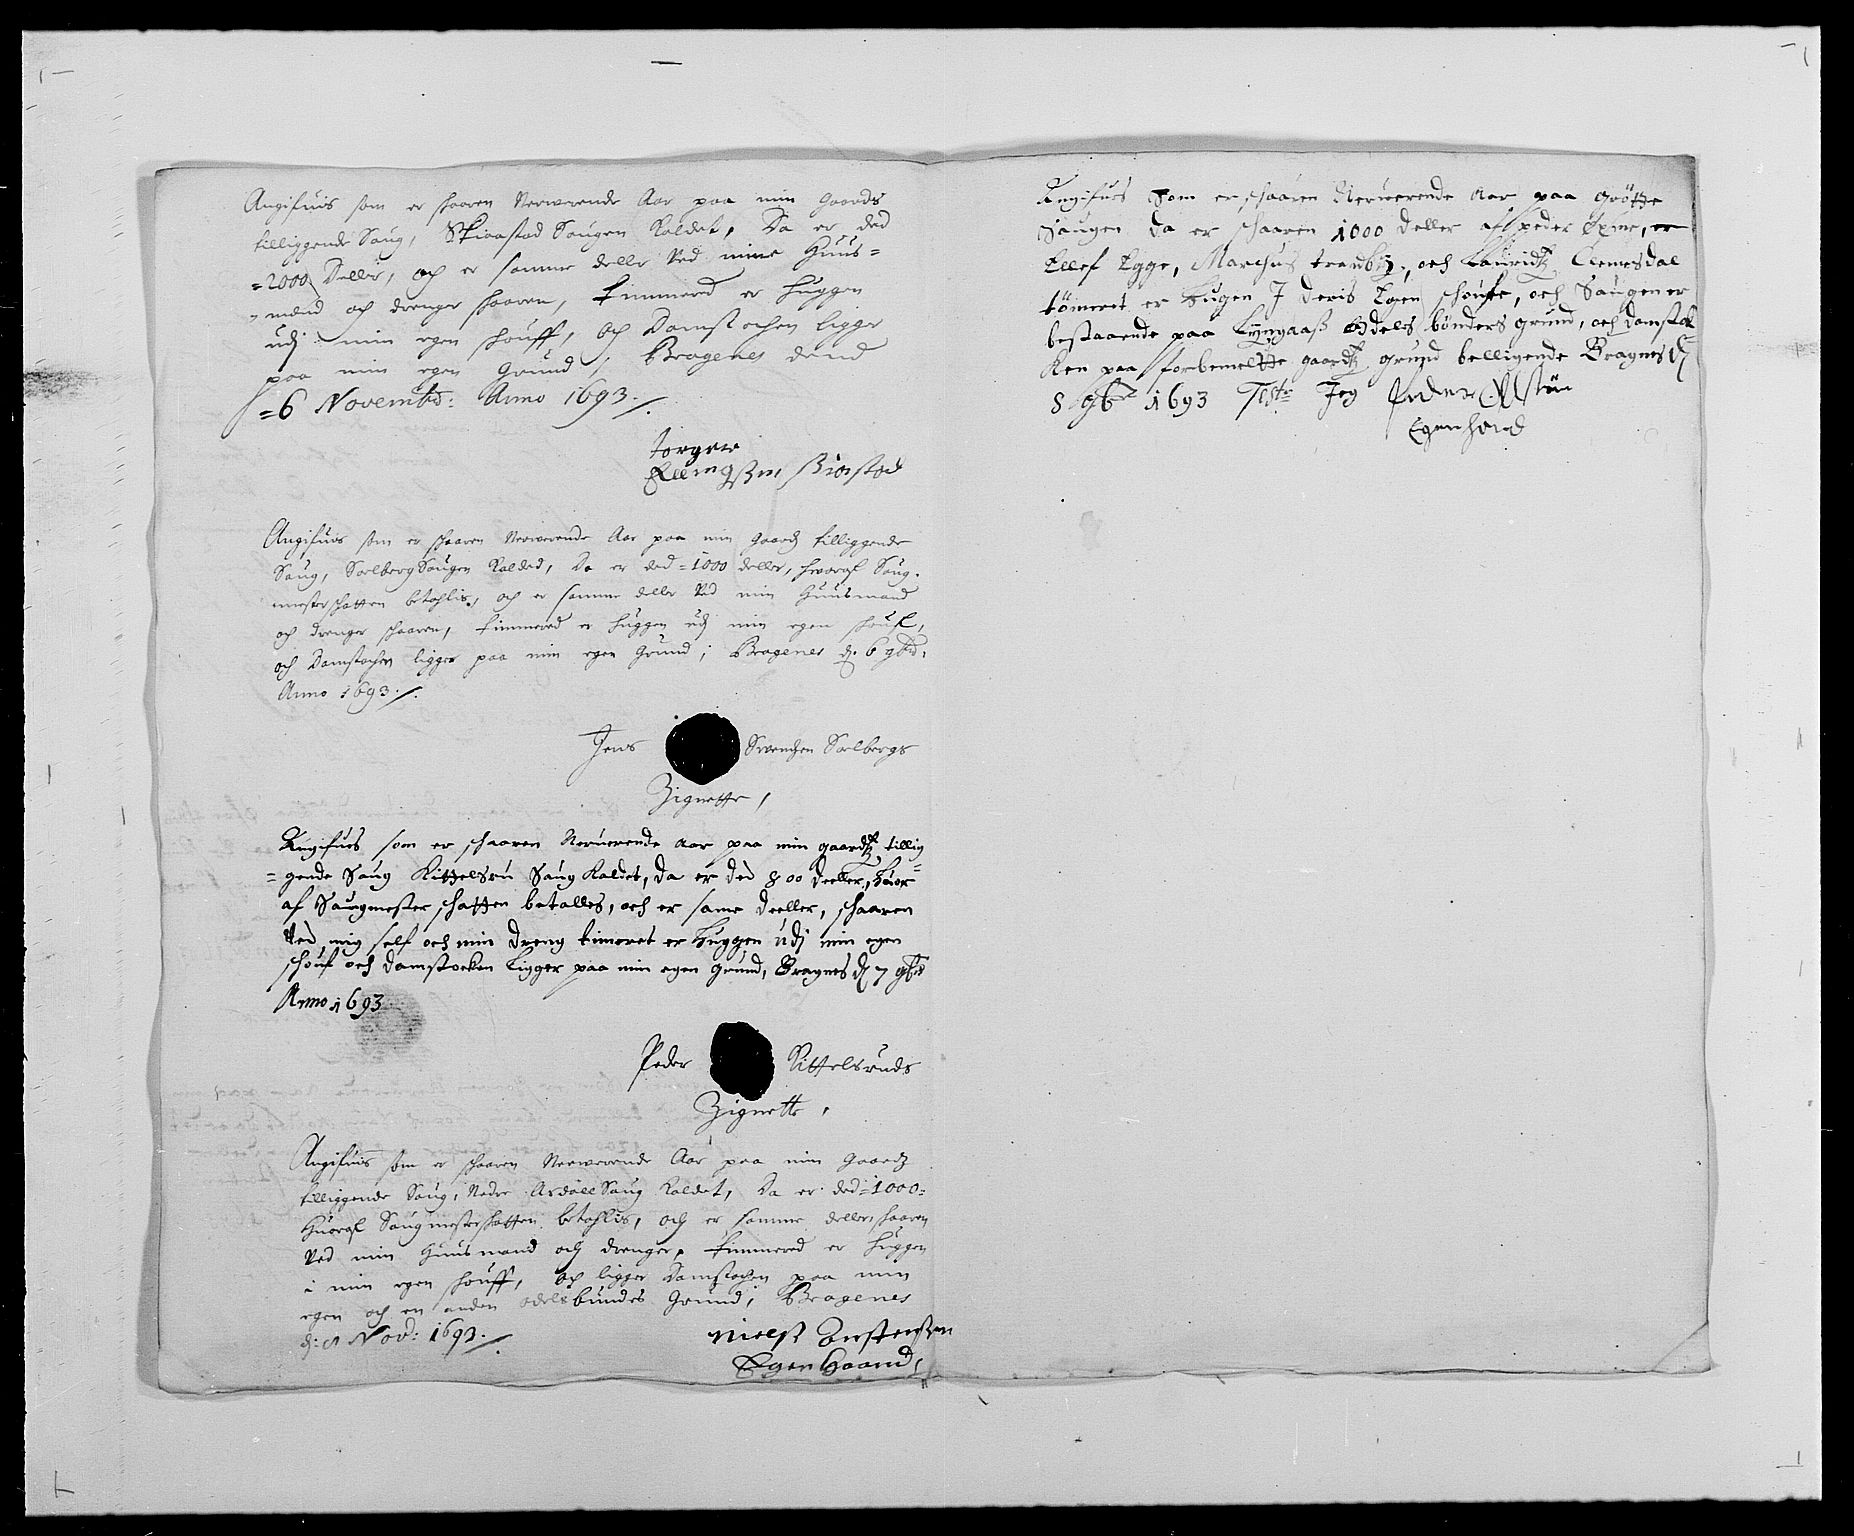 Angifuis som er skaaren Nerwerende Aar paa min Gaards
tilliggende Saug, Skioastad Saugen Kaldet, Da er ded
=2000 Deller, och er samme delle Ved mine Huus=
=mænd och drenger skaaren, Timmered er huggen
udj min egen skouff, och Damstochen ligger
paa min egen Grund, Bragenes dend
=6 Novembr: Anno 1693./.
torger
Ellingßøn Skiostad
Angifuis som er skaaren Nerwerende Aar paa min Gaards tilliggende
Saug, Solberg Saugen Kalded, Da er ded =1000 deller, hworaf Saug-
mester skatten betahlis, och er samme delle Ved min Huusmand
och drenger skaaren, timmered er huggen udj min egen skouf,
och Damstochen ligger paa min egen Grund, Bragenes d. 6 9br:
Anno 1693./.
Jens Swendsen Solbergs
Zignette,
Angifues som er skaaren Neruerende aar paa min gaardtz tillig
=gende Saug Kittelsru Saug Kaldet, da er ded 800 deeller, huor=
af Saugmester skatten betalles, och er same deeller, skaaren
Ved mig self och min dreng timeret er huggen udj min egen
skouf och damstocken ligger paa min egen grund, Bragnes d 7 9br
Anno 1693
Peder Kittelsruds
Zignette,
Angifuis som er skaaren Nerwerende Aar paa min Gaardz
tilliggende Saug, Nedre Asdøll Saug Kaldet, Da er ded =1000=
huoraf Saugmesterskatten betahlis, och er samme deller skaaren
Ved min Huusmand och drenger, timmered er huggen
i min egen skouff, och ligger Damstochen paa min
egen och en anden odelsbundes Grund, Bragenes
d: Nov: 1693./.
Nielß Torstenßen
Egen Haand,
Angifues som er skaaren Nerwerende aar paa Grøtte
Saugen da er skaaren 1000 deller af peder
Ellef Egge, Marchus tranb, och Lauridtz Clemesdal
tømeret er hugen J deris Egen skoufe, och Saugen er
bestaaende paa Lyngaaß Odels bønders grund, och damstok
Ken paa forbemeltte gaardtz grund belligende Bragnes d
8 9br 1693 Jeg Peder
Egen Haand